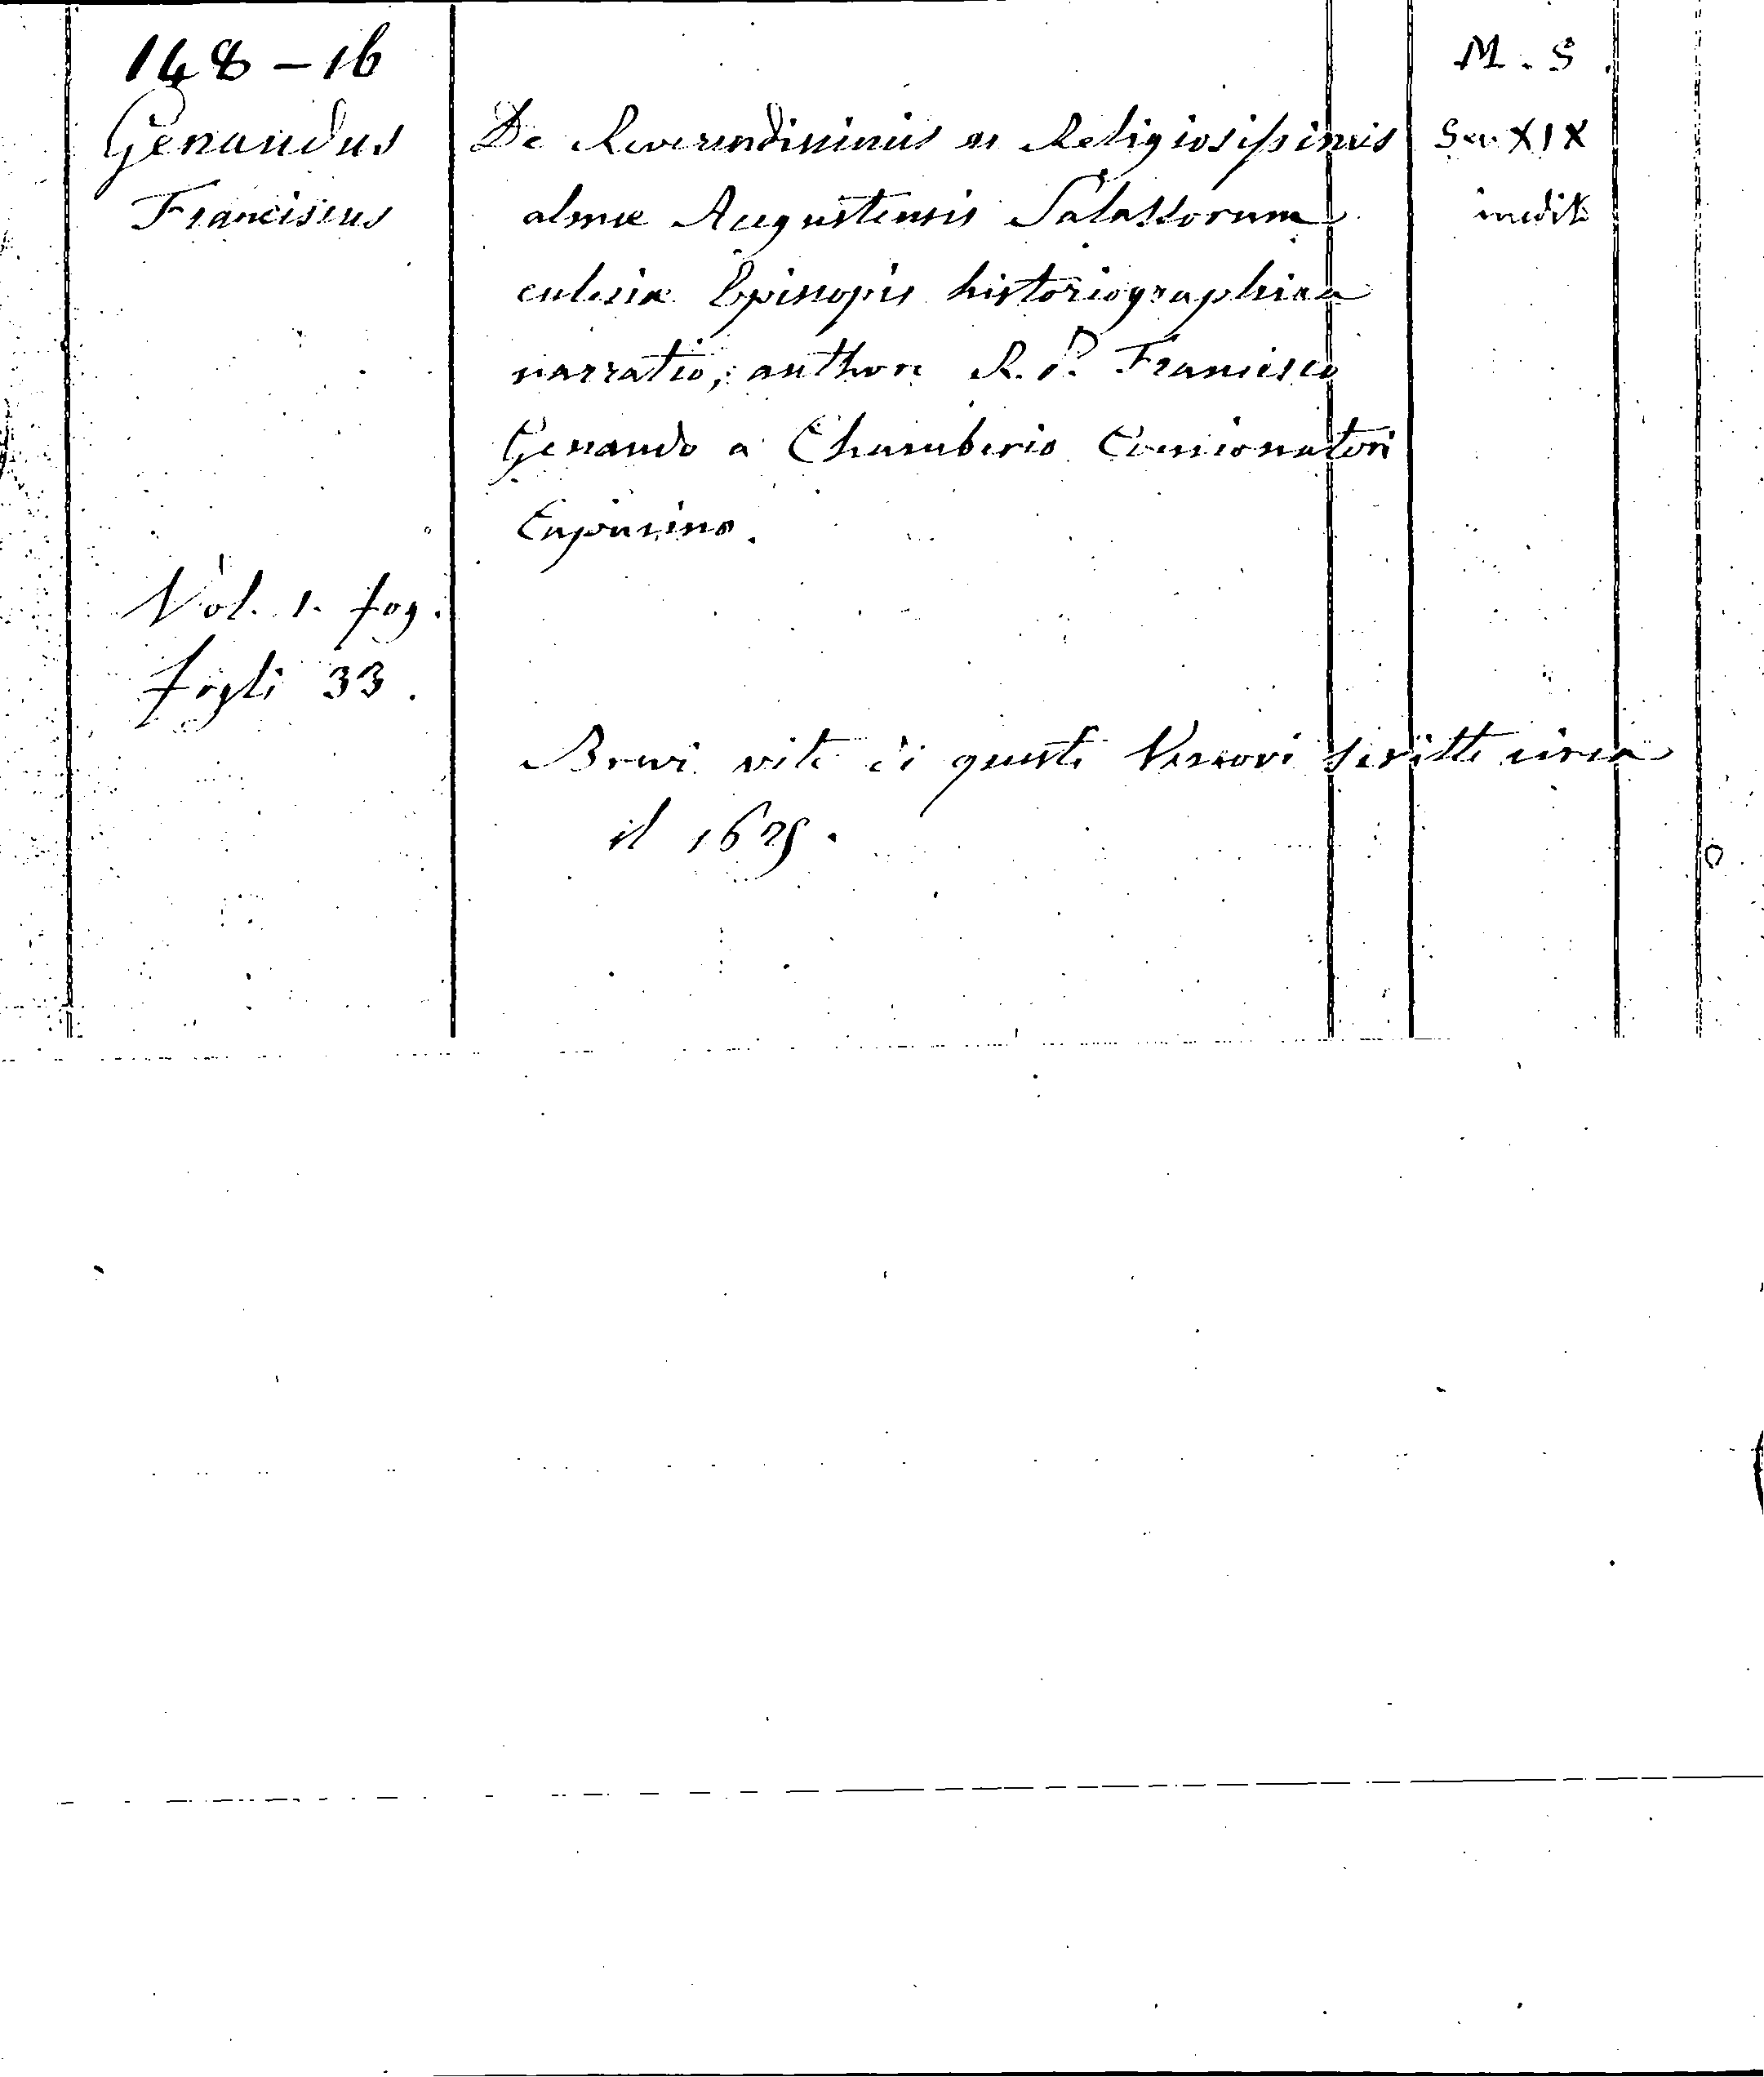 148 – 16
Genandus
Franciscus
Vol. 1. fog.
fogli 33.
De Reverendissimis ac Religiosissimis
almæ Augustensis Salassorum
eclesiæ Episcopis historiographica
narratio, authore R. P. Francisco
Genando a Chamberio Concionatori
Capucino.
Brevi vite di questi Vescovi scritte circa
il 1625.
M. S.
Sec. XIX
inedito